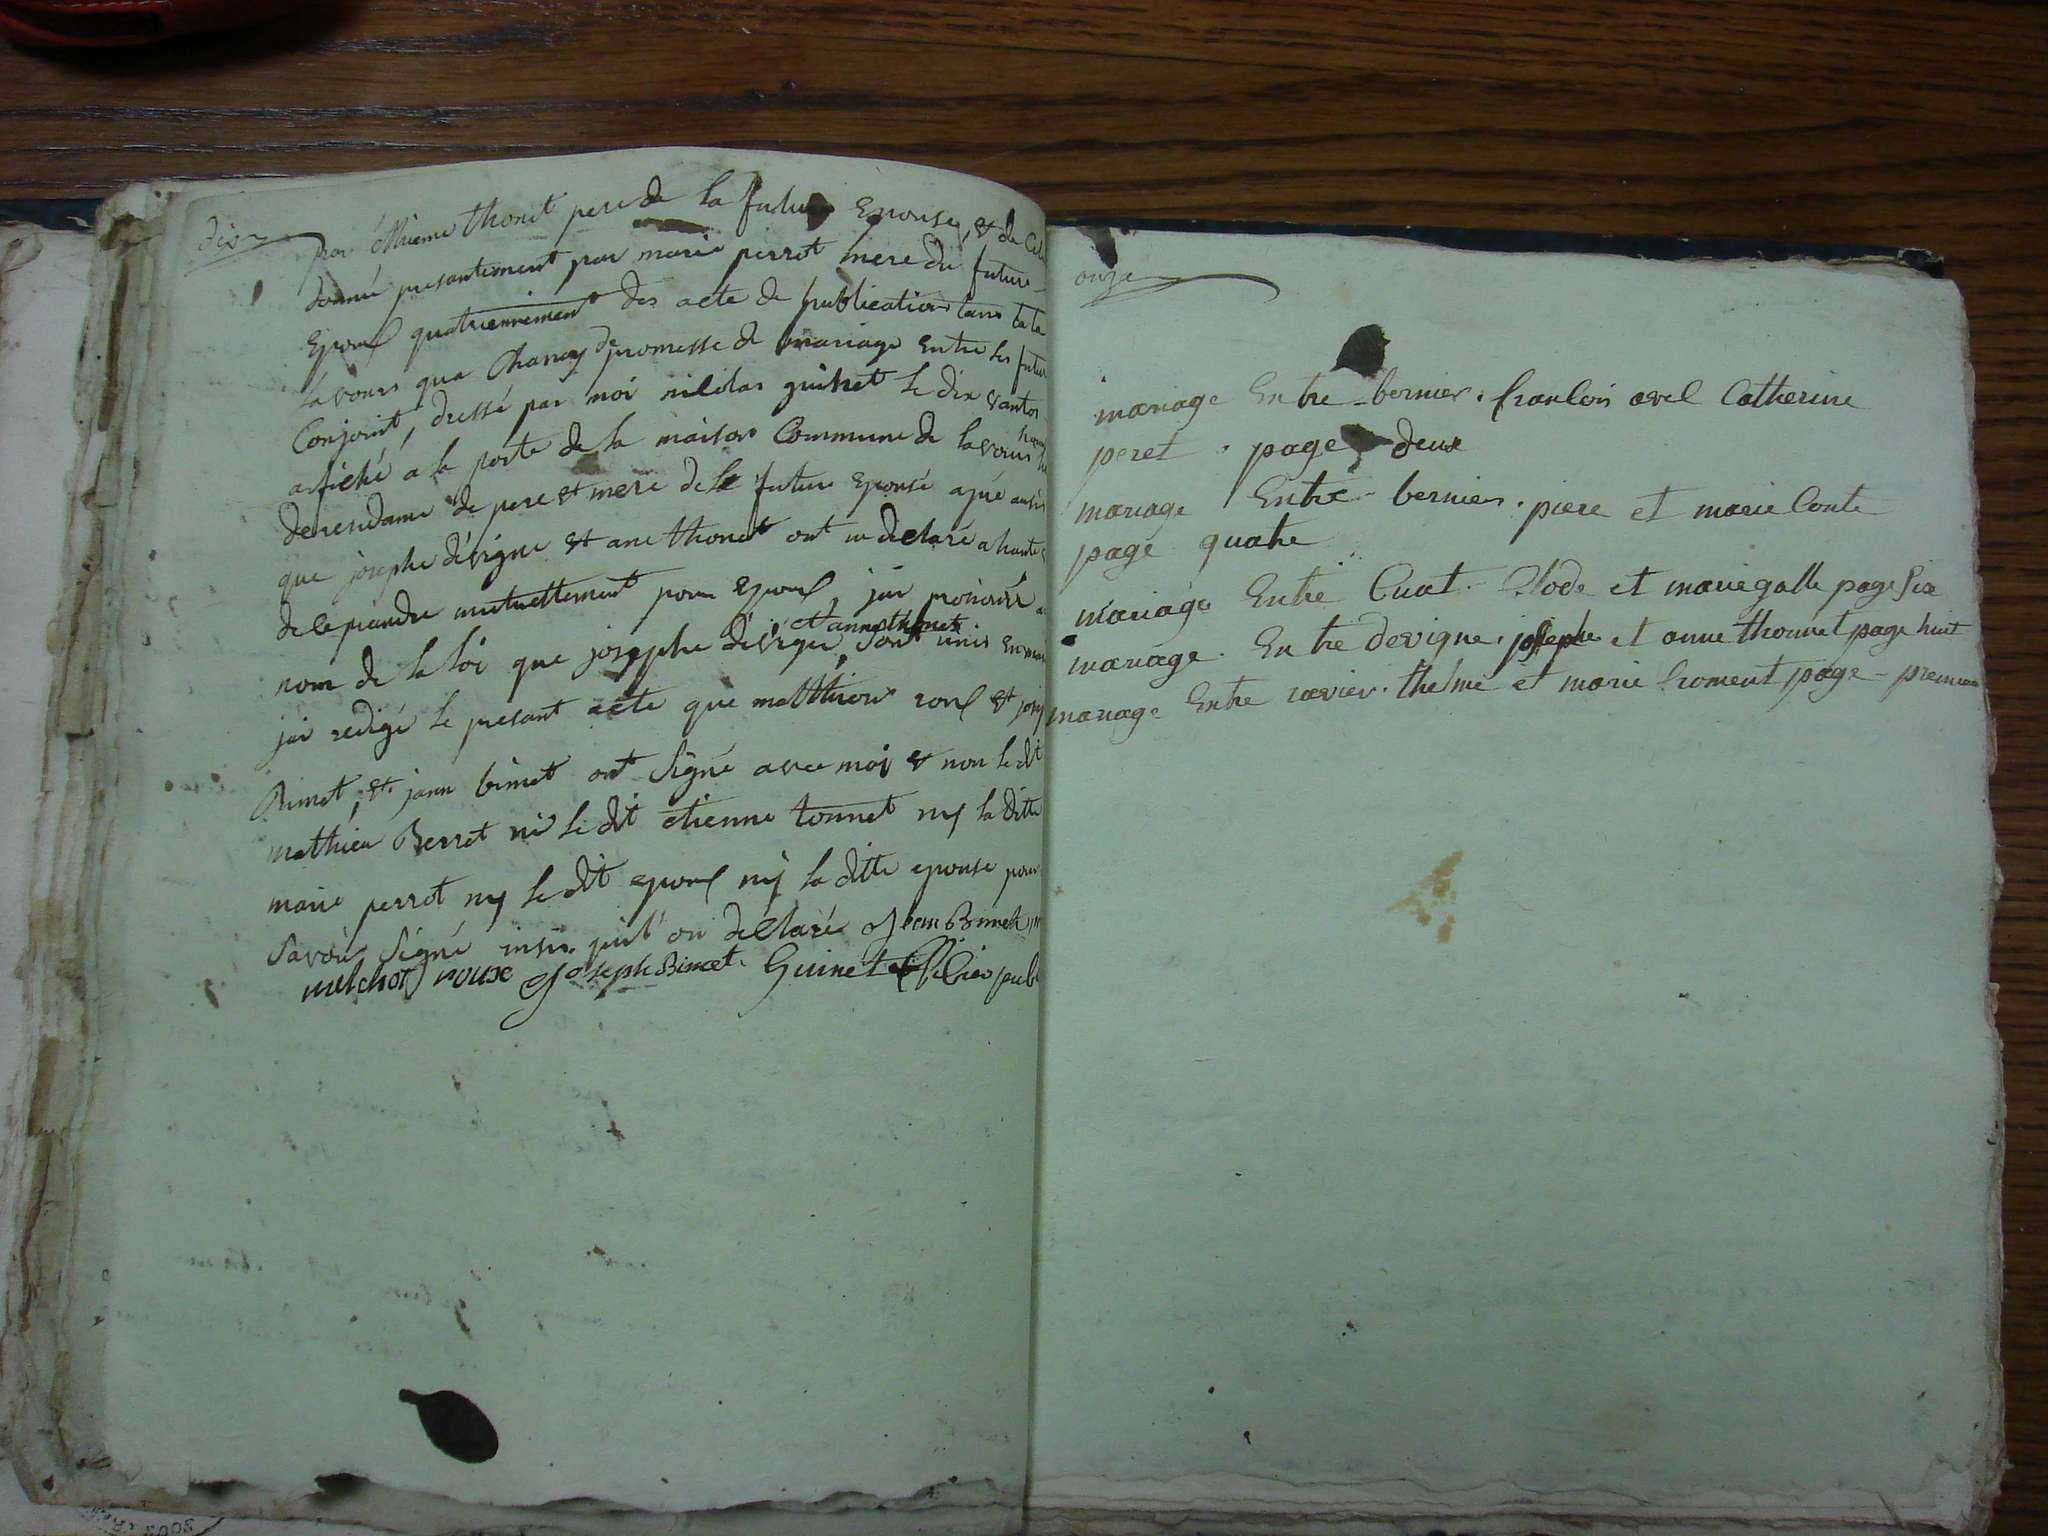 dix
par éthieme thonet pere de la future Epouse, et de Cel
donné presantement par marie perrot mere du future
Epoux quatriennement des acte de publication tans ta la
lavours qua Chanay de promesse de mariage entre les futur
Conjoint, dressé par moi nicolas guinet le dix vantos
afiché a la porte de la maison Commune de lavours
de pere et mere de la future epousé apré
que josephe dévigne et ane thonet ont declaré a haute
de ce prandre mutuellement pour epoux, jai prononcé a
et anne thonet
nom de la loi que josephe dévigne, sont unis en
jai redigé le presant acte que matthieu roux et
Bimet, et jann bimet ont signé avec moi et non le dit
mathieu Berret ni le dit etienne tonnet ny la ditte
marie perrot ny le dit epoux ny la ditte epouse pour
savoir signé declaré Jean Bimet
melchot roux Joseph Bimet Guinet officier publ
onze
mariage Entre bernier. francois avel Catherine
peret. page deux
mariage Entre bernier. piere et marie Conte
page quatre
mariage Entre Cuat Clode et marie galle page six
mariage. Entre devigne. josephe et anne thonnet page huit
mariage Entre ravier. thelme et marie froment page premier